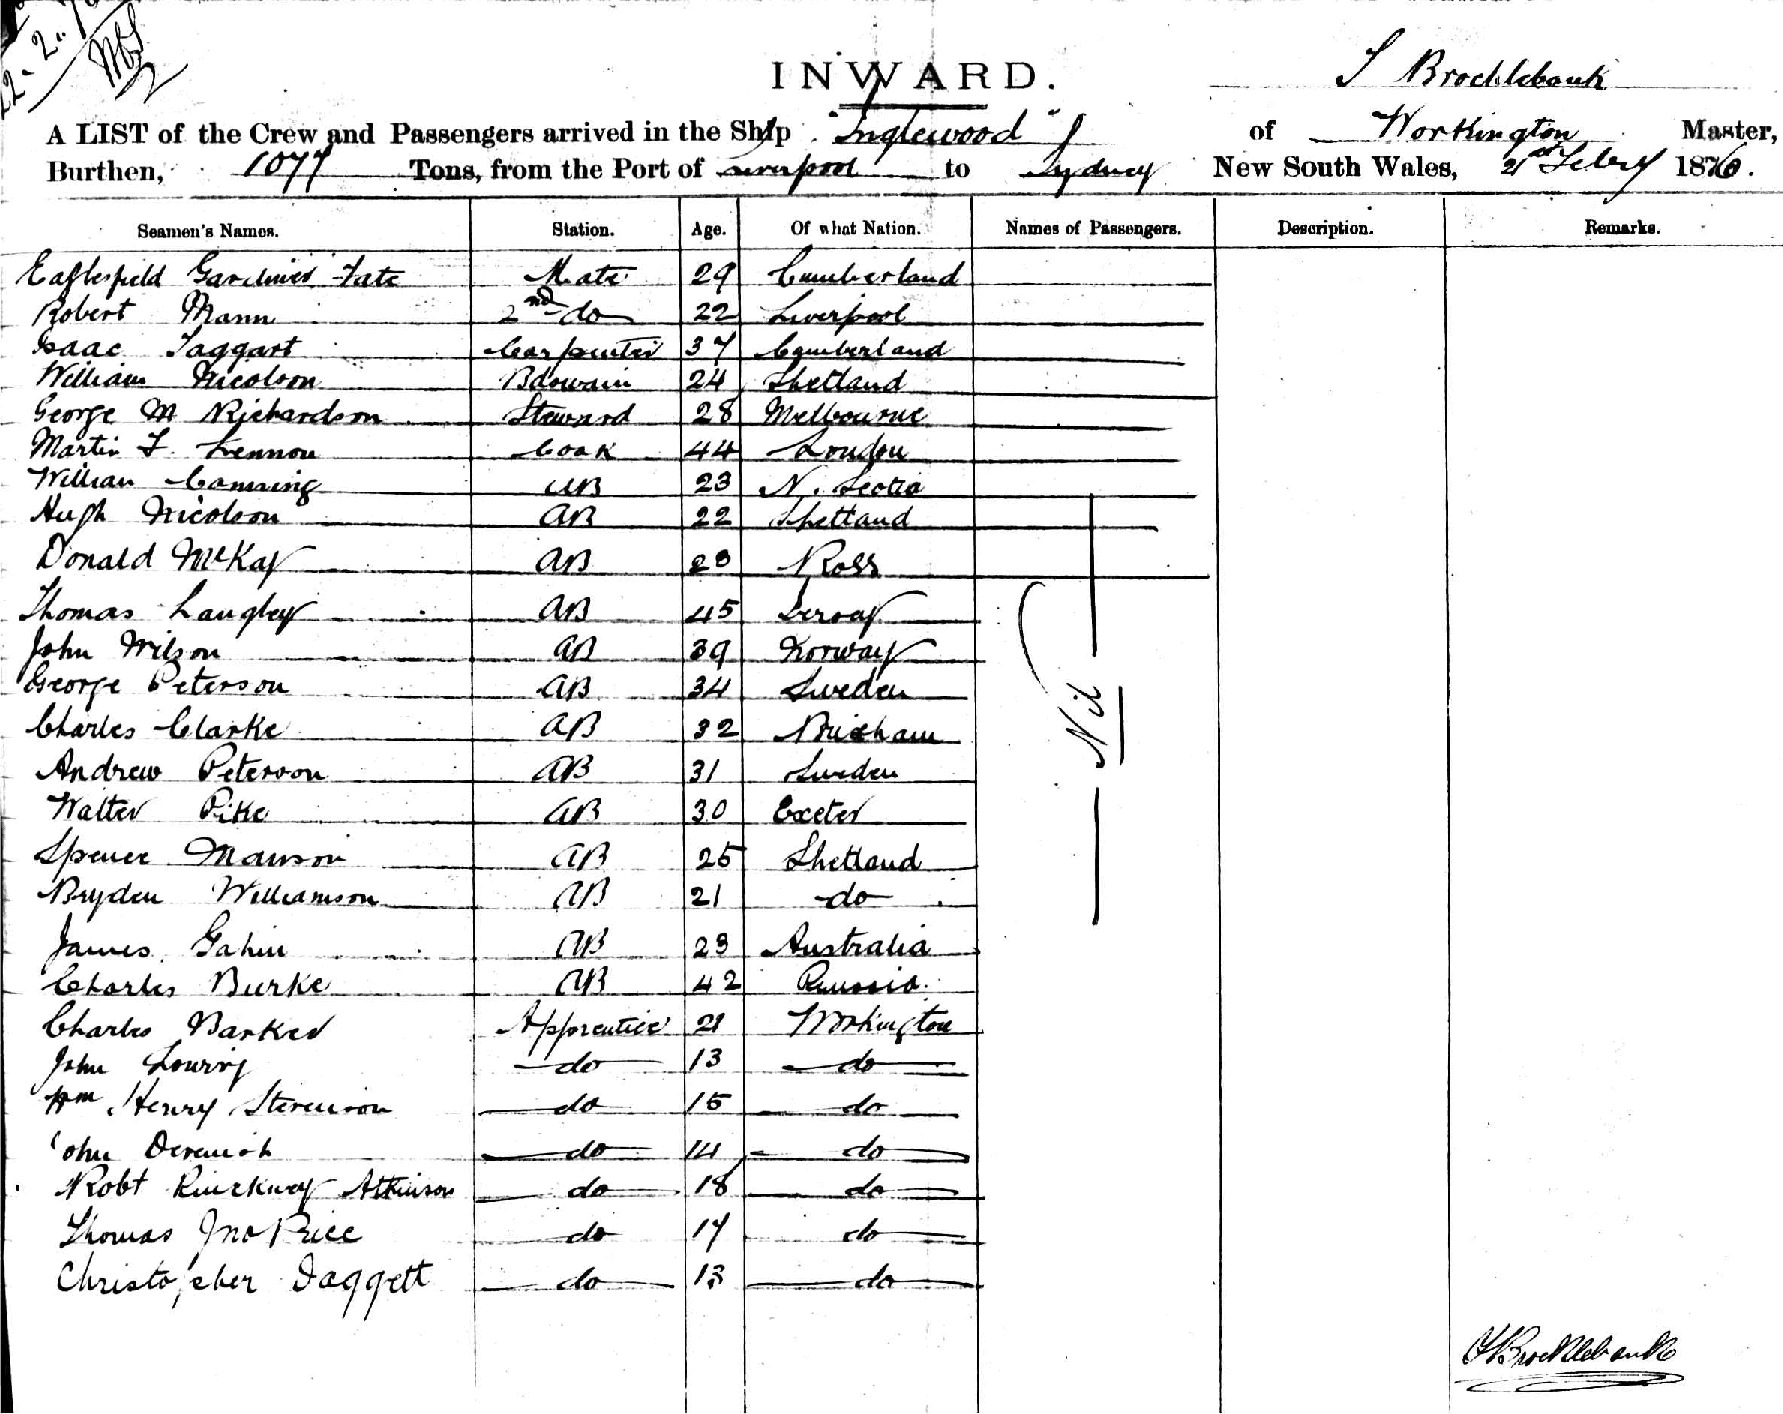 22. 2. 76
INWARD.
J Brocklebank
A LIST of the Crew and Passengers arrived in the Ship "Inglewood" of Workington Master,
Burthen, 1077 Tons, from the Port of Liverpool to Sydney New South Wales, 21st Feby 1876.
Seamen's Names. Station. Age. Of what Nation. Names of Passengers. Description. Remarks.
Eaglesfield Gardiner Tate Mate 29 Cumberland
Robert Mann 2nd do 22 Liverpool
Isaac Taggart Carpenter 37 Cumberland
William Nicolson Boswain 24 Shetland
George M Richardson Steward 28 Melbourne
Martin F. Lennon Cook 44 London
William Comming AB 23 N. Scotia
Hugh Nicolson AB 22 Shetland
Donald McKay AB 23 Ross
Thomas Langley AB 45
John Wilson AB 39 Norway
George Peterson AB 34 Sweden
Nil
Charles Clarke AB 32 Brixham
Andrew Peterson AB 31 Sweden
Walter Pike AB 30 Exeter
Spence Manson AB 25 Shetland
Bryden Williamson AB 21 do
James Gahin AB 23 Australia
Charles Burke AB 42 Prussia
Charles Barker Apprentice 21 Workington
John Lowry do 13 do
Wm Henry Stevenson do 15 do
John do 14 do
Robt Atkinson do 18 do
Thomas Jno Price do 17 do
Christopher Daggett do 13 do
J Brocklebank